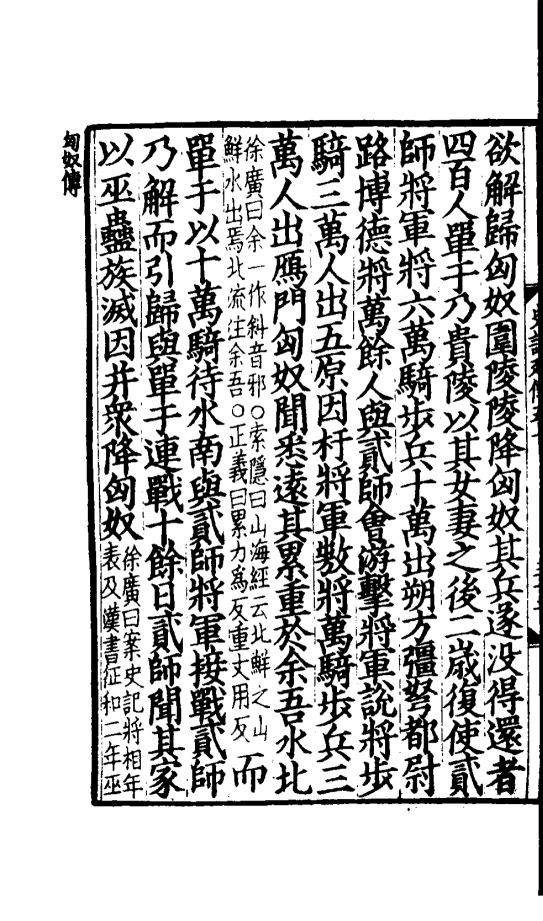 欲解歸匈奴圍陵陵降匈奴其兵遂没得還者
四百人單于乃貴陵以其女妻之後二歲復使貳
師將軍將六萬騎步兵十萬出朔方彊弩都尉
路博德將萬餘人與貳師會游擊將軍說將步
騎三萬人出五原因杅將軍敖將萬騎步兵三
萬人出鴈門匈奴聞悉遠其累重於余吾水北
徐廣曰余一作斜音邪○索隱曰山海經云北鮮之山
鮮水出焉北流注余吾○正義曰累力爲反重丈用反
而
單于以十萬騎待水南與貳師將軍接戰貳師
乃解而引歸與單于連戰十餘日貳師聞其家
以巫蠱族滅因并衆降匈奴
徐廣曰案史記將相年
表及漢書征和二年巫
匈奴傳